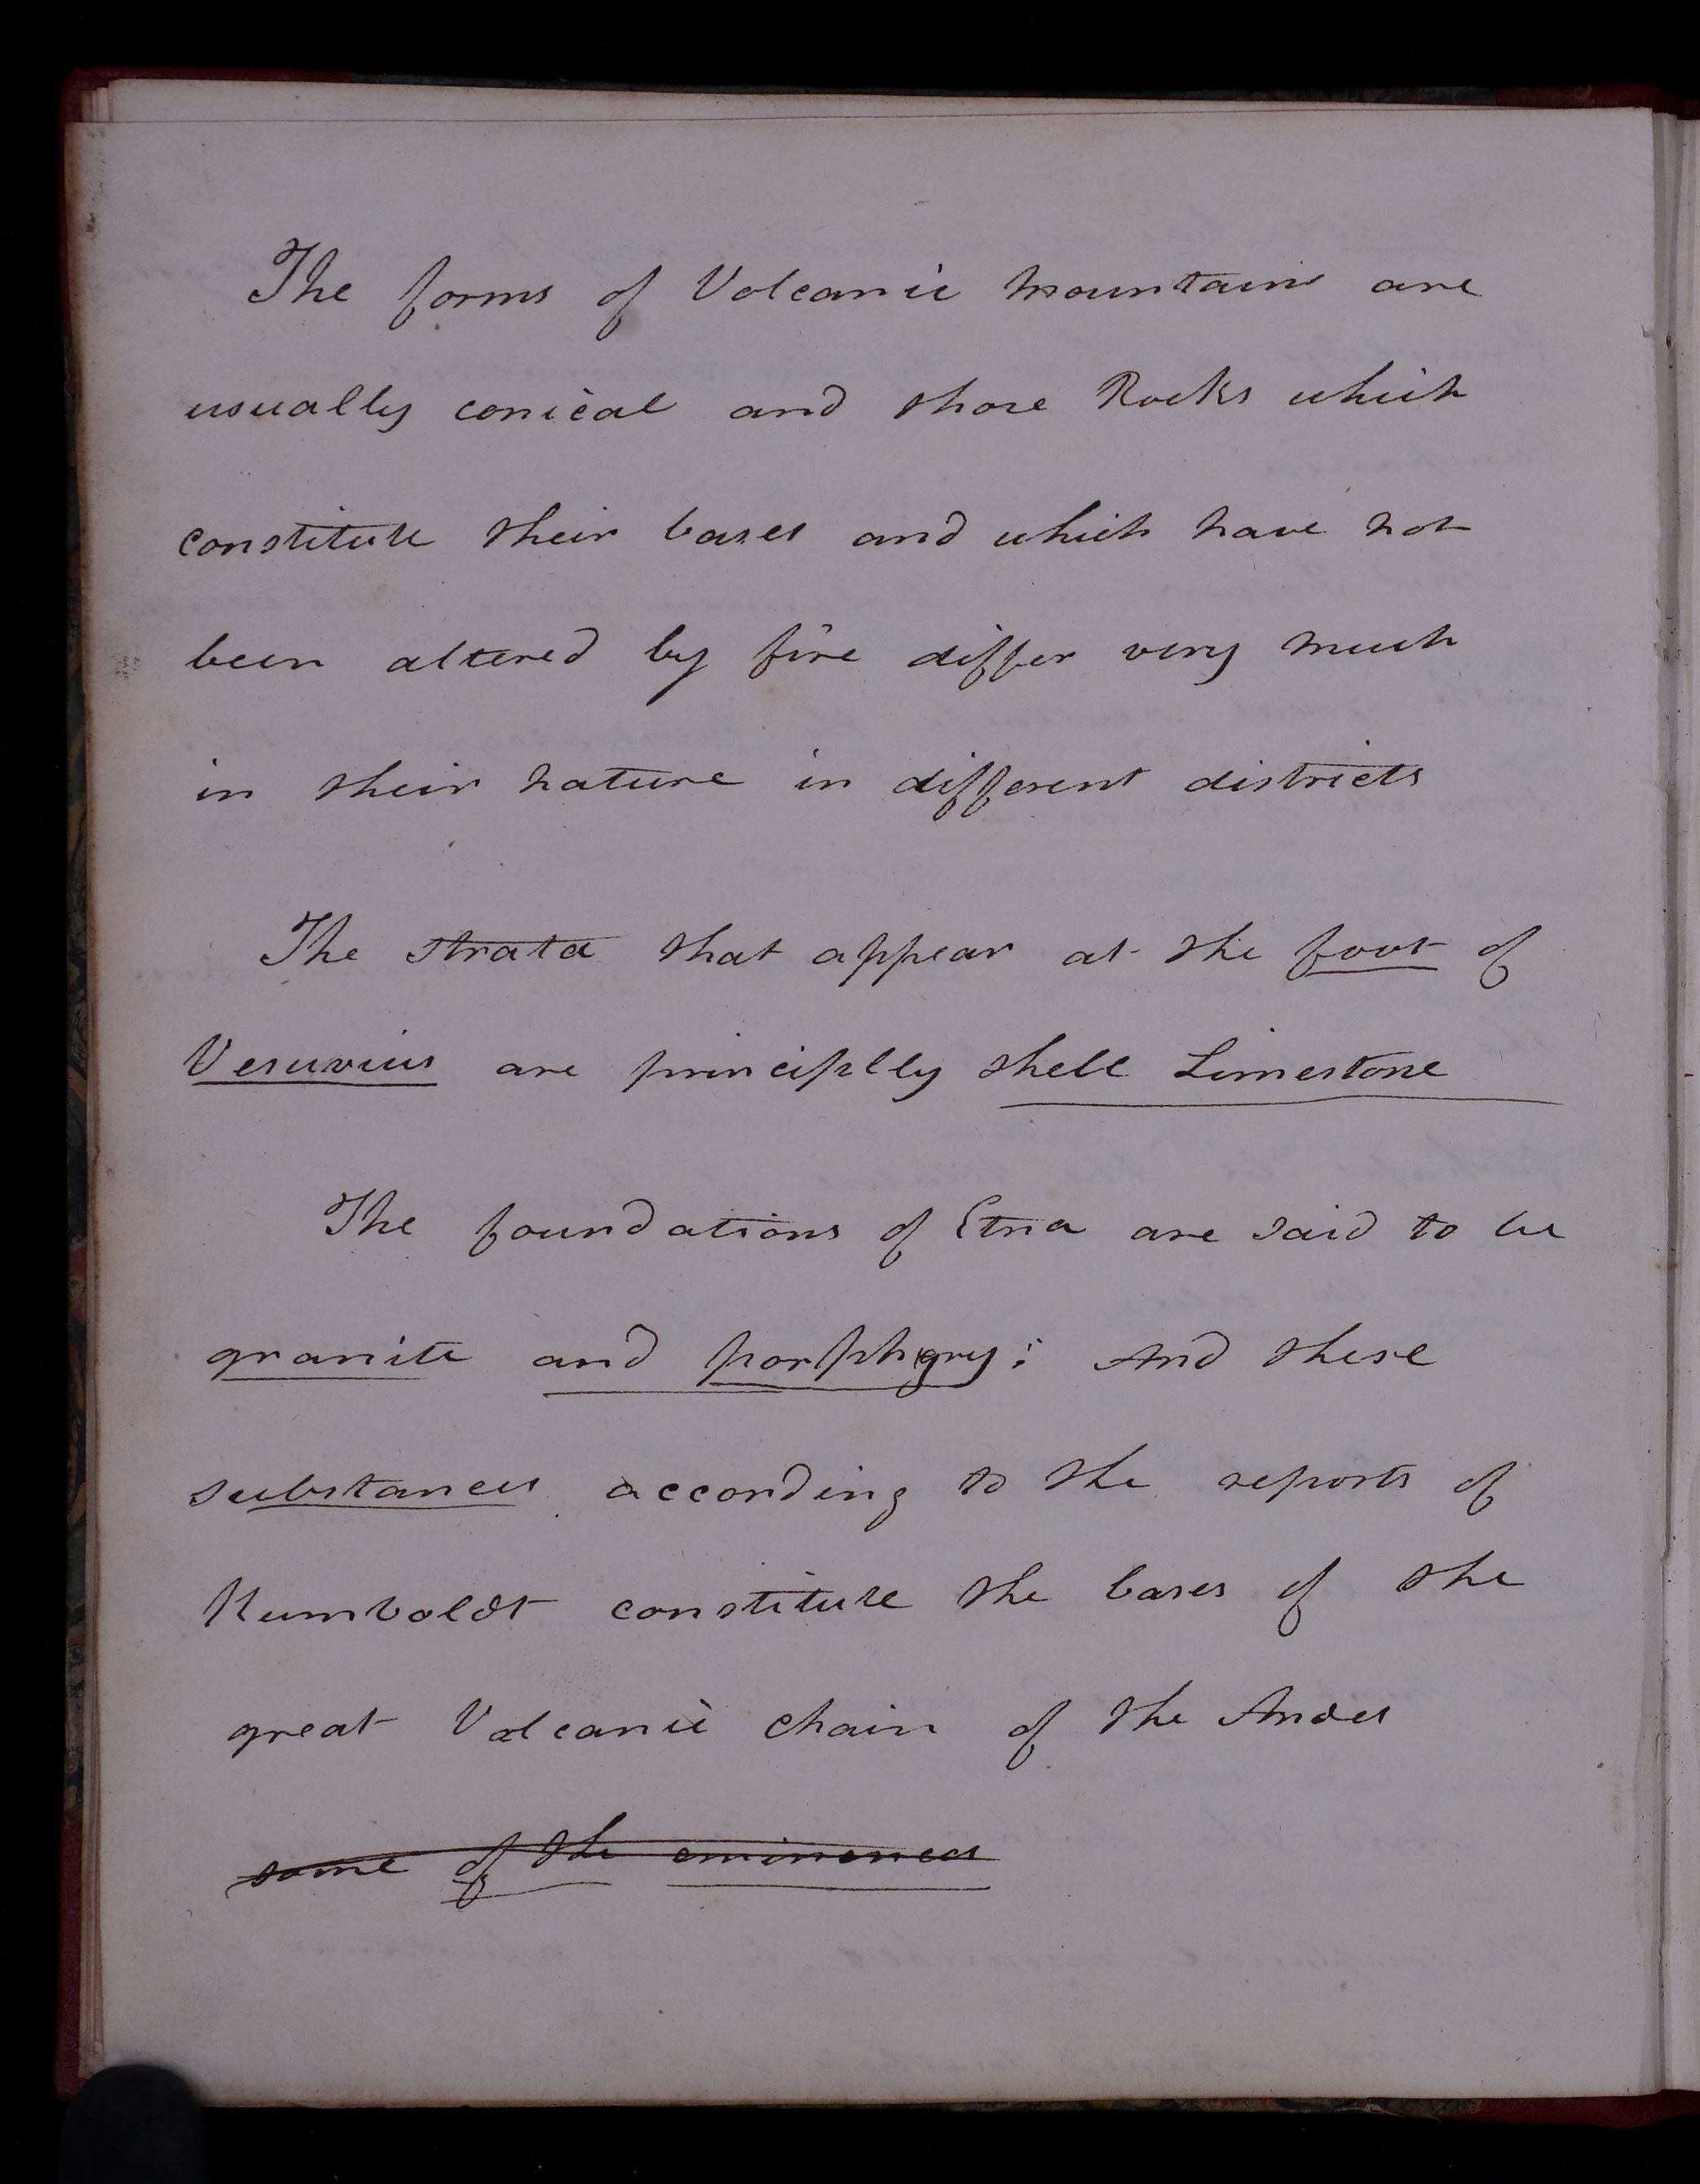 The forms of Volcanic mountains are
usually conical and those Rocks which
constitute their bases and which have not
been altered by fire differ very much
in their nature in different districts
The strata that appear at the foot of
Vesuvius are principlly shell Limestone
The foundations of Etna are said to be
granite and porphyry; And these
substances according to the reports of
Humboldt constitute the bases of the
great Volcanic chain of the Andes
some of the eminences